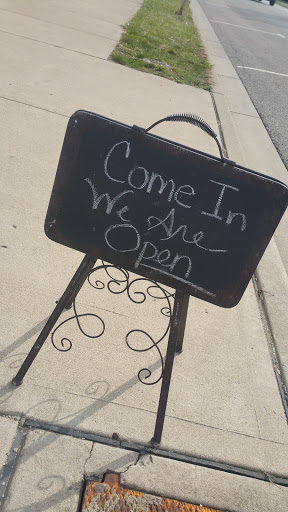 Come In
We Are
Open